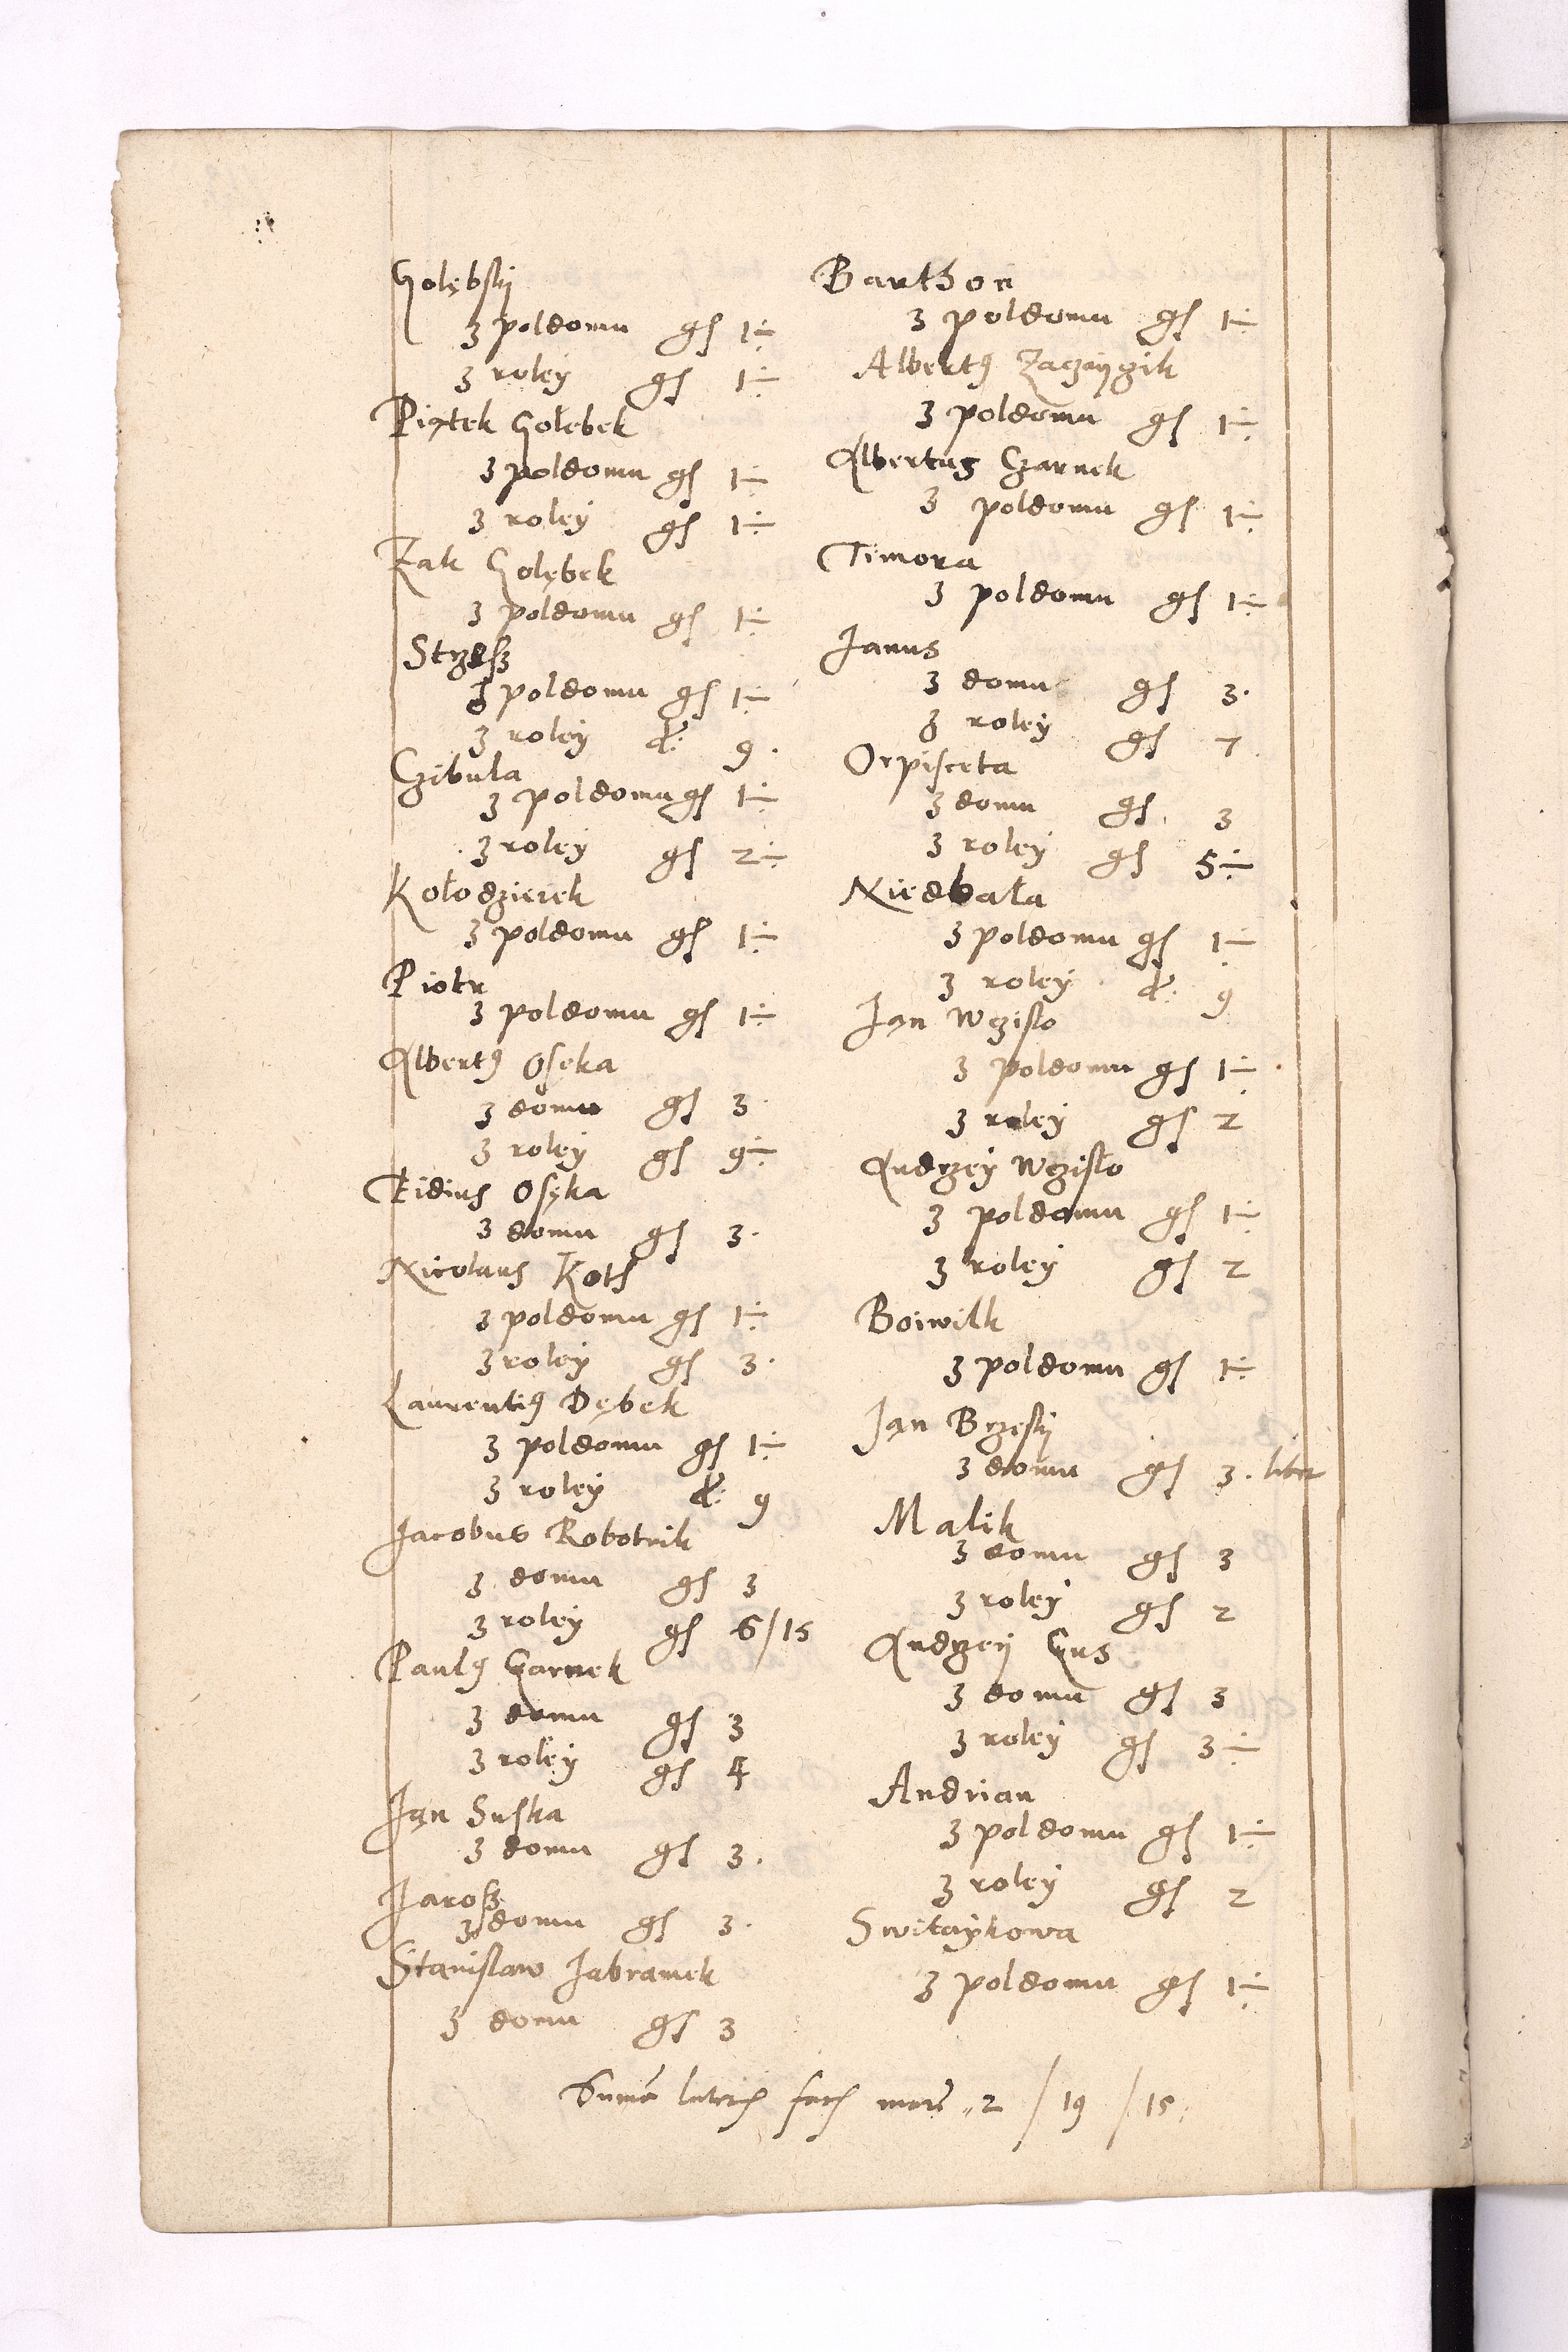 Golębsky
z poldomu gs 1÷
z roley gs 1÷
Piątek Golebek
z poldomu gs 1÷
z roley gs 1÷
Zak Golębek
z poldomu gs 1÷
Strzessz
z poldomu gs 1÷
z roley d: 9.
Czibula
z poldomu gs 1÷
z roley gs 2÷
Kołodzierek
z poldomu gs 1÷
Piotr
z poldomu gs 1÷
Albertg Osęka
z domu gs 3.
z roley gs 9÷
Eidius Osęka
z domu gs 3.
Nicolaus Koth
z poldomu gs 1÷
z roley gs 3.
Laurentig Dębek
z poldomu gs 1÷
z roley d: 9
Jacobus Robotnik
z domu gs 3
z roley gs 6/15
Paulg Czarnek
z domu gs 3
z roley gs 4
Jąn Suska
z domu gs 3.
Jarosz
z domu gs 3.
Stanislaw Jabramek
z domu gs 3
Barthon
z poldomu gs 1÷
Albertg
z poldomu gs 1÷
Albertus Czarnek
z poldomu gs 1÷
Timora
z poldomu gs 1÷
Janus
z domu gs 3.
z roley gs 7
Orpisceta
z domu gs. 3
z roley gs 5÷
Niedbała
z poldomu gs 1÷
z roley d: 9
Jąn Wzisło
z poldomu gs 1÷
z roley gs 2
Andrzey Wzisło
z poldomu gs 1÷
z roley gs 2
Boiwilk
z poldomu gs 1÷
Jąn Brzesky
z domu gs 3. liber
Malik
z domu gs 3
z roley gs 2
Andrzey Gus
z domu gs 3
z roley gs 3÷
Andrian
z poldomu gs 1÷
z roley gs 2
Switaykowa
z poldomu gs 1÷
Suma lateris facit marc 2 / 19 / 15.